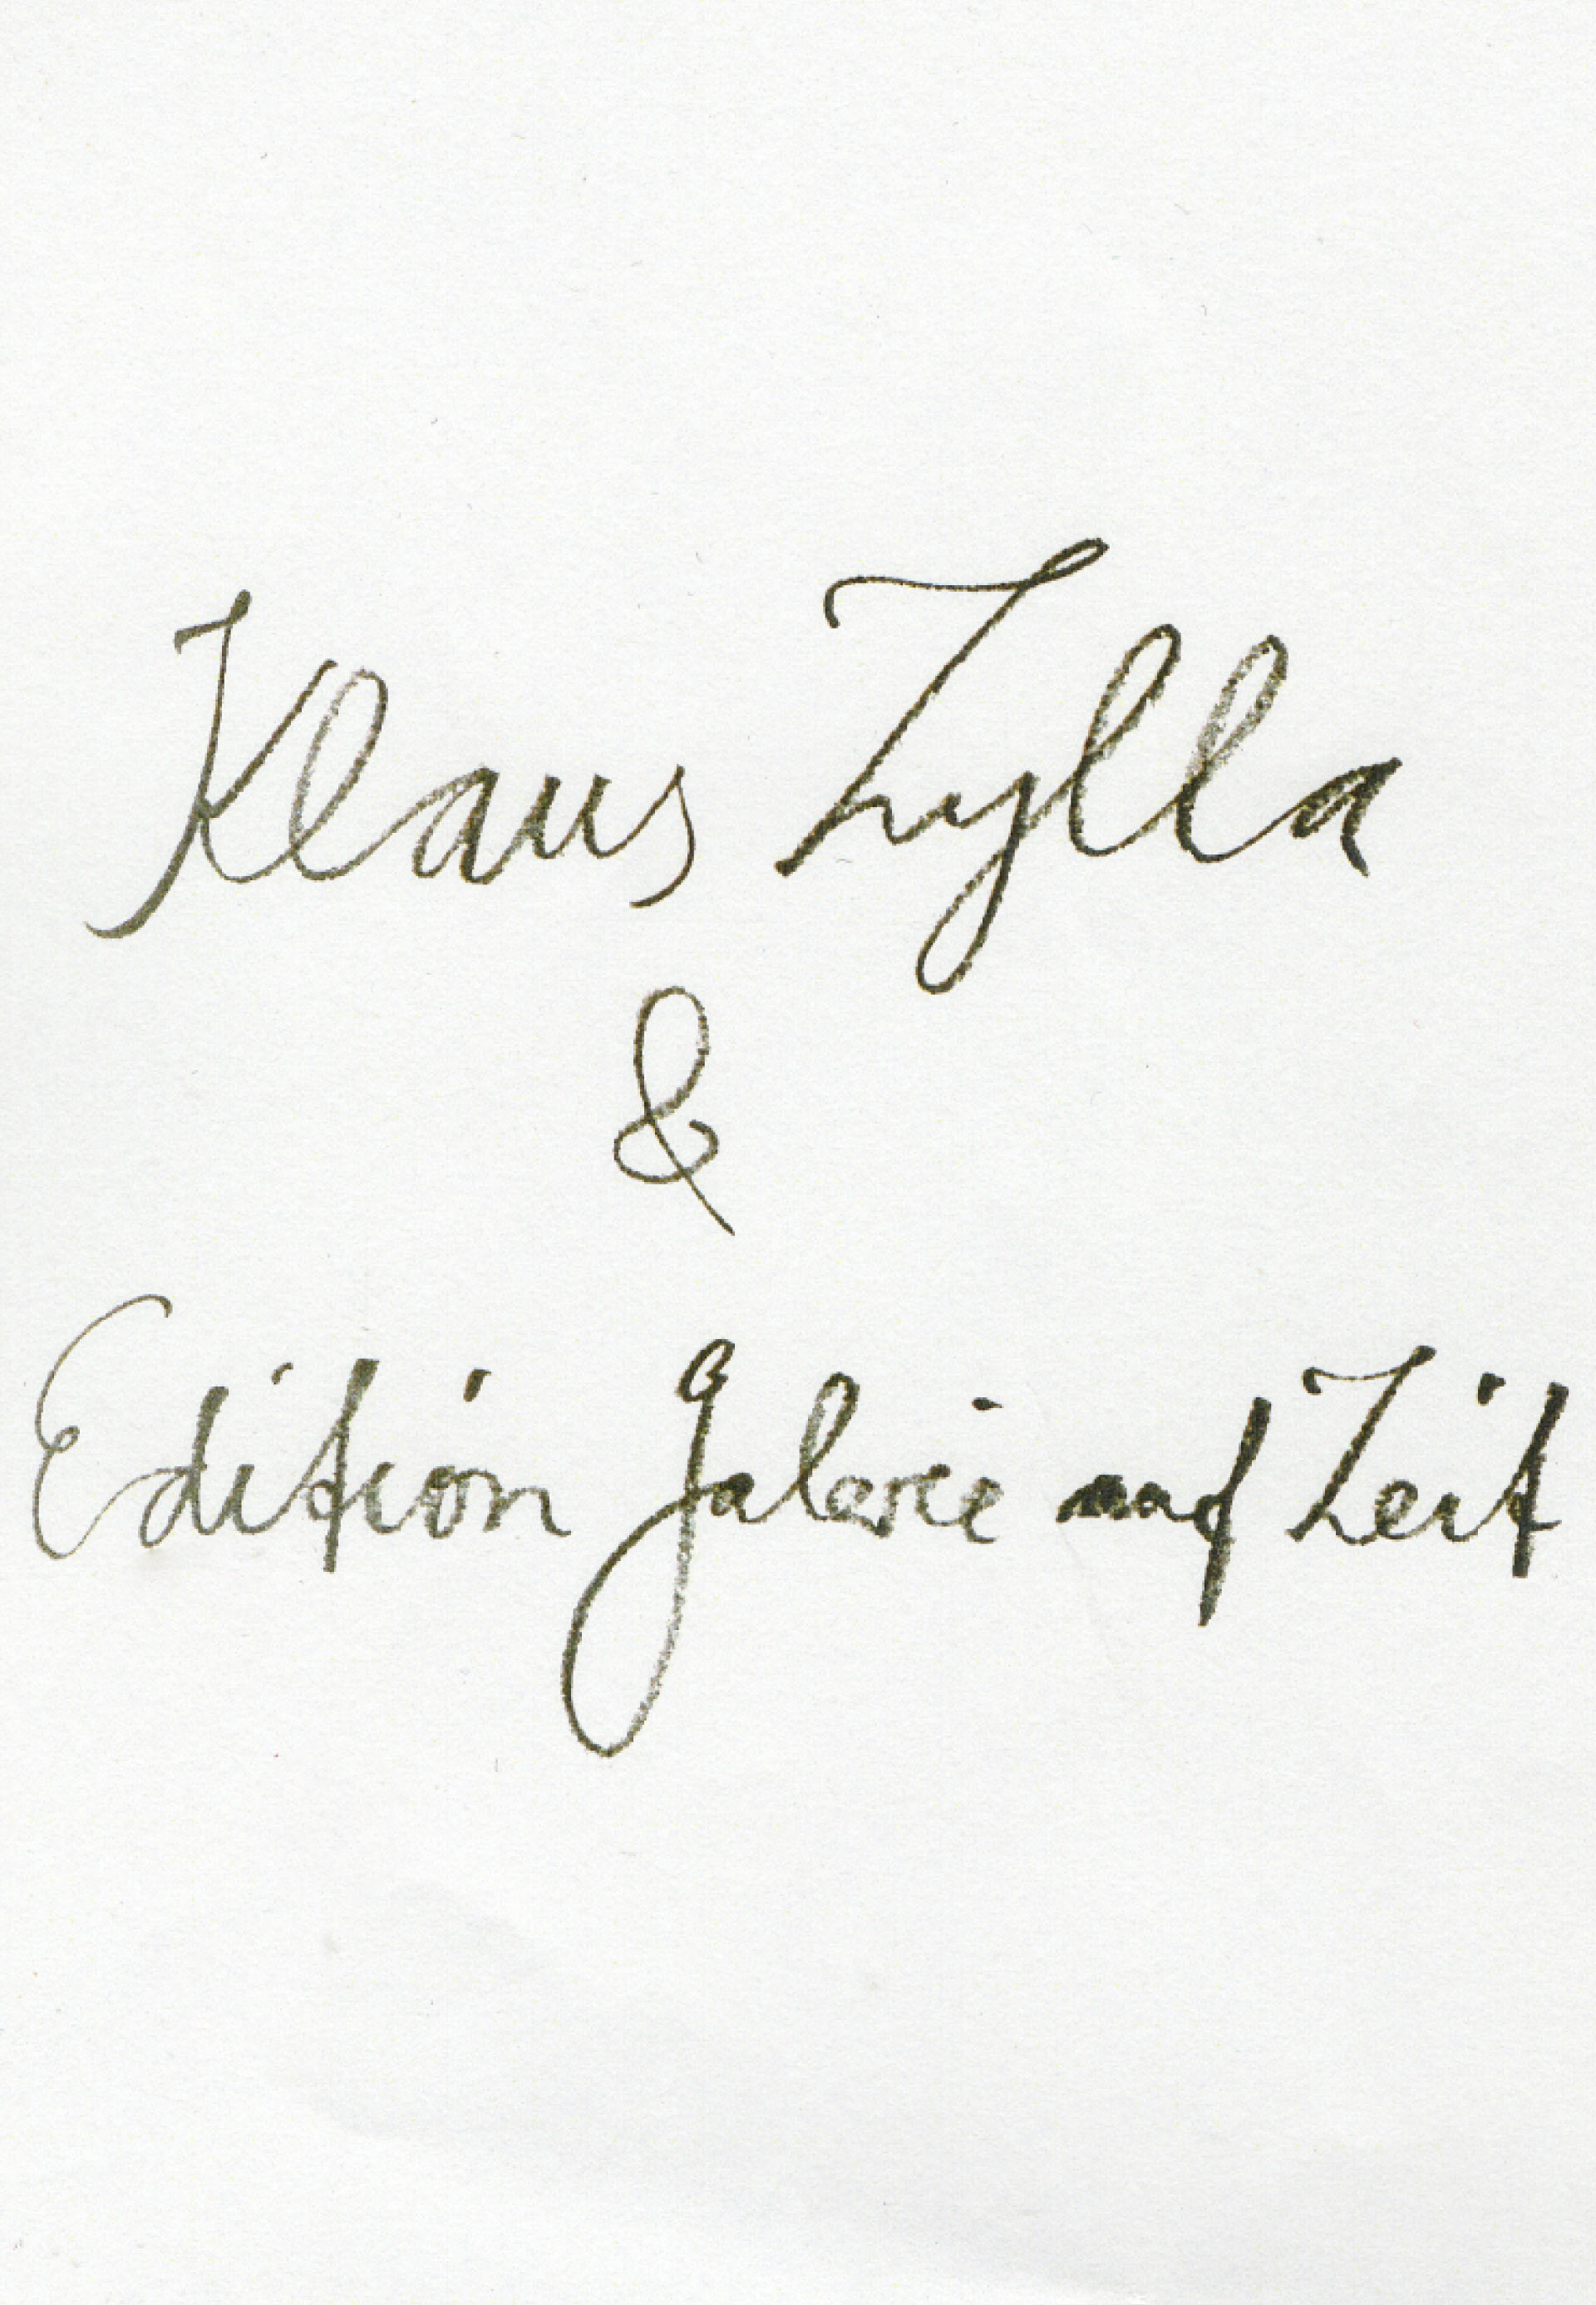 Klaus Zylla
&
Edition Galerie auf Zeit